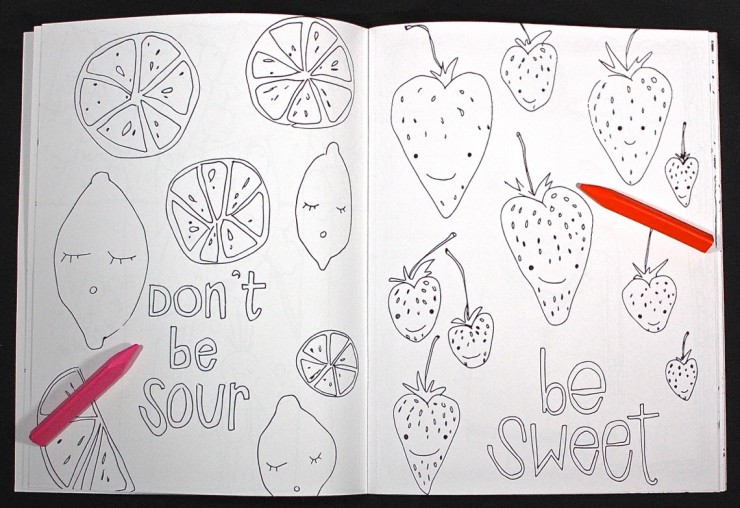 Don't
be
sour
be
sweet